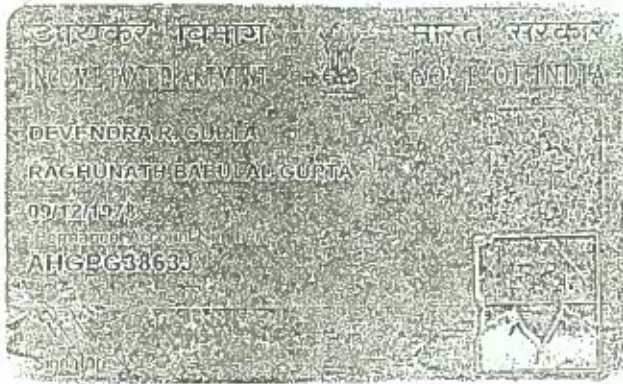 आयकर विभाग
भारत सरकार
INCOME TAX DEPARTMENT
GOVT. OF INDIA
DEVENDRA R. GUPTA
RAGHUNATH BABULAL GUPTA
Permanent Account
Signature